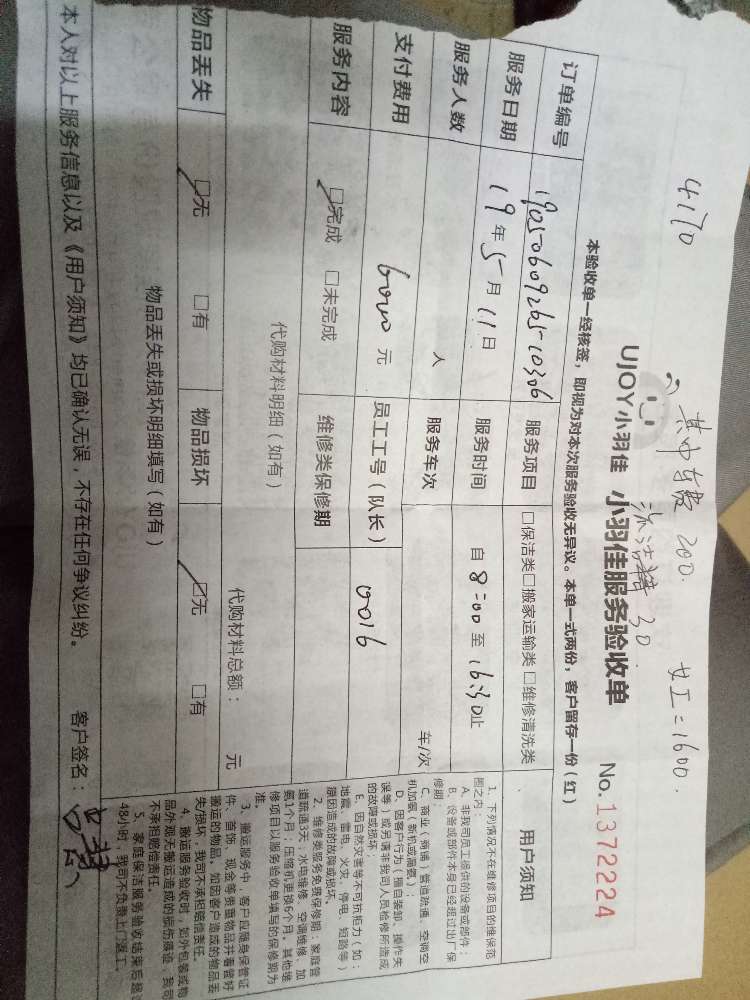 4170
其中车费 200.
女工=1600.
洗洁精 30.
UJOY小羽佳 小羽佳服务验收单 No.1372224
本验收单一经核签，即视为对本次服务验收无异议。本单一式两份，客户留存一份（红）
订单编号 19050609265-10306 服务项目 □保洁类□搬家运输类 □维修清洗类
服务日期 19年5月11日 服务时间 自 8:00 至 16:30止
服务人数 人 服务车次 车/次
支付费用 6000 元 员工工号（队长） 0016
服务内容 ☑完成 □未完成 维修类保修期
代购材料明细（如有） 代购材料总额： 元
物品丢失 ☑无 □有 物品损坏 ☑无 □有
物品丢失或损坏明细填写（如有）
本人对以上服务信息以及《用户须知》均已确认无误，不存在任何争议纠纷。 客户签名：
用户须知
1、下列情况不在维修项目的维保范
围之内：
A、非我司员工提供的设备或部件；
B、设备或部件本身已经超过出厂保
修期；
C、商业（商铺）管道疏通、空调空
机加氨（新机或漏氨）；
D、因客户行为（擅自装卸、操作失
误等）或另请非我司人员检修所造成
的故障或损坏；
E、因自然灾害等不可抗拒力（如：
地震、雷电、火灾、停电、短路等）
原因造成的故障或损坏。
2、维修类服务免费保修期：家庭管
道疏通3天；水电维修、空调维修、加
氨1个月；压缩机更换6个月。其他维
修项目以服务验收单填写的保修期为
准。
3、搬运服务中，客户应随身保管证
件、首饰、现金等贵重物品并看管好
搬运的物品，如因客户造成的物品丢
失/损坏，我司不承担赔偿责任。
4、搬运服务验收时，如外包装或物
品外观无搬运造成的损伤痕迹，我司
不承担赔偿责任。
5、家庭保洁服务验收结束后超
48小时，我司不负责上门返工。